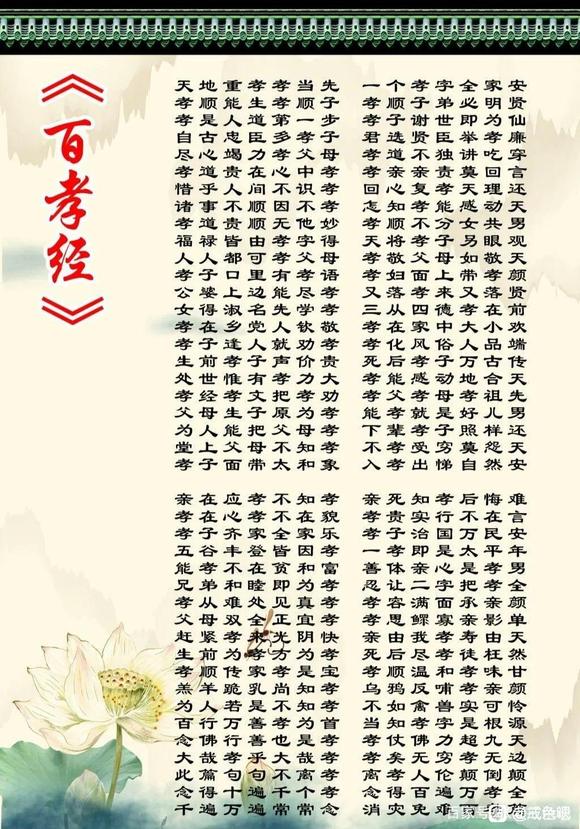 《百孝经》
天地重孝孝当先 一个孝字全家安
孝顺能生孝顺子 孝顺子弟必明贤
孝是人道第一步 孝子谢世即为仙
自古忠臣多孝子 君选贤臣举孝廉
尽心竭力孝父母 孝道不独讲吃穿
孝道贵在心中孝 孝亲亲责莫回言
惜乎人间不识孝 回心复孝天理还
诸事不顺因不孝 怎知孝能感动天
孝道贵顺无他妙 孝顺不分女共男
福禄皆由孝字得 天将孝子另眼观
人人都可孝父母 孝敬父母如敬天
孝子口里有孝语 孝妇面上带孝颜
公婆上边能尽孝 又落孝来又落贤
女得淑名先学孝 三从四德孝在前
孝在乡党人钦敬 孝在家中大小欢
孝子逢人就劝孝 孝化风俗人品端
孝前孝子声价贵 死后孝子万古传
生世惟有孝力大 孝能感动地合天
处经孝文把孝劝 孝父孝母孝祖先
孝母生子原为孝 孝能就是好儿男
父人能把父母孝 能下辈孝子照样还
为上父母不知孝 不孝受穷莫怨天
堂子面带太和象 入孝出悌自然安
亲在应孝不知孝 亲死知孝后悔难
孝在心孝不在貌 孝贵实行不在言
孝子齐家全家乐 孝子治国万民安
五谷丰登皆因孝 一孝即是太平年
能孝不在贫和富 善体亲心是孝男
兄弟和睦即为孝 忍让二字把孝全
孝从难处见真孝 孝容满面承亲颜
父母双全正宜孝 孝思鳏寡亲影单
赶紧孝来光阴快 亲由我孝寿由天
生前为孝方为孝 死后尽孝徒枉然
孝顺传家孝是宝 孝顺温和孝味甘
羔羊跪乳尚知孝 乌鸦反哺孝亲颜
为人若是不知孝 不如禽兽实可怜
百行万善孝为首 当知孝字是根源
念佛行善也是孝 孝仗佛力超九天
大哉孝乎大哉孝 孝矣无穷孝无边
此篇句句不离孝 离孝人伦颠倒颠
念得十遍千个孝 念得百遍万孝全
千遍万遍常常念 消灾免难
百家号 @戒色嗯